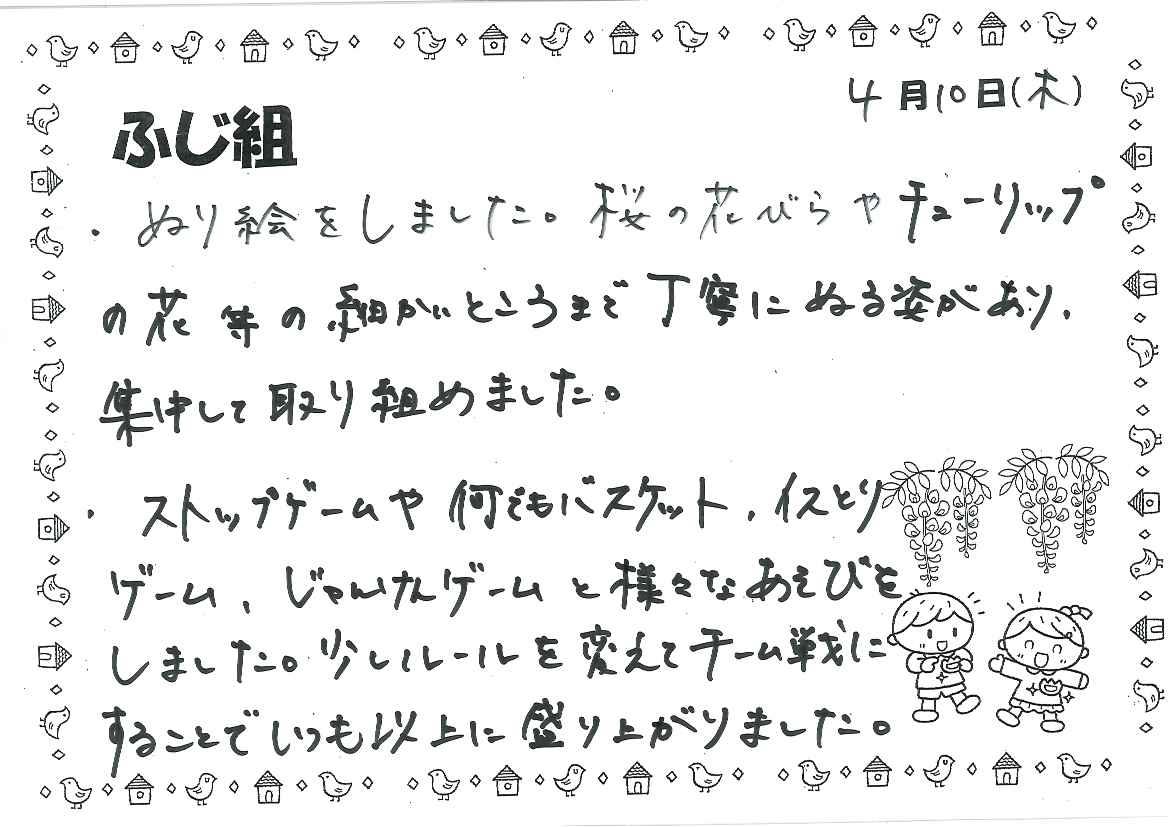 4月10日(木)
ふじ組
・ぬり絵をしました。桜の花びらやチューリップ
の花等の細かいところまで丁寧にぬる姿があり、
集中して取り組めました。
・ストップゲームや何でもバスケット、イスとり
ゲーム、じゃんけんゲームと様々なあそびを
しました。少しルールを変えてチーム戦に
することでいつも以上に盛り上がりました。